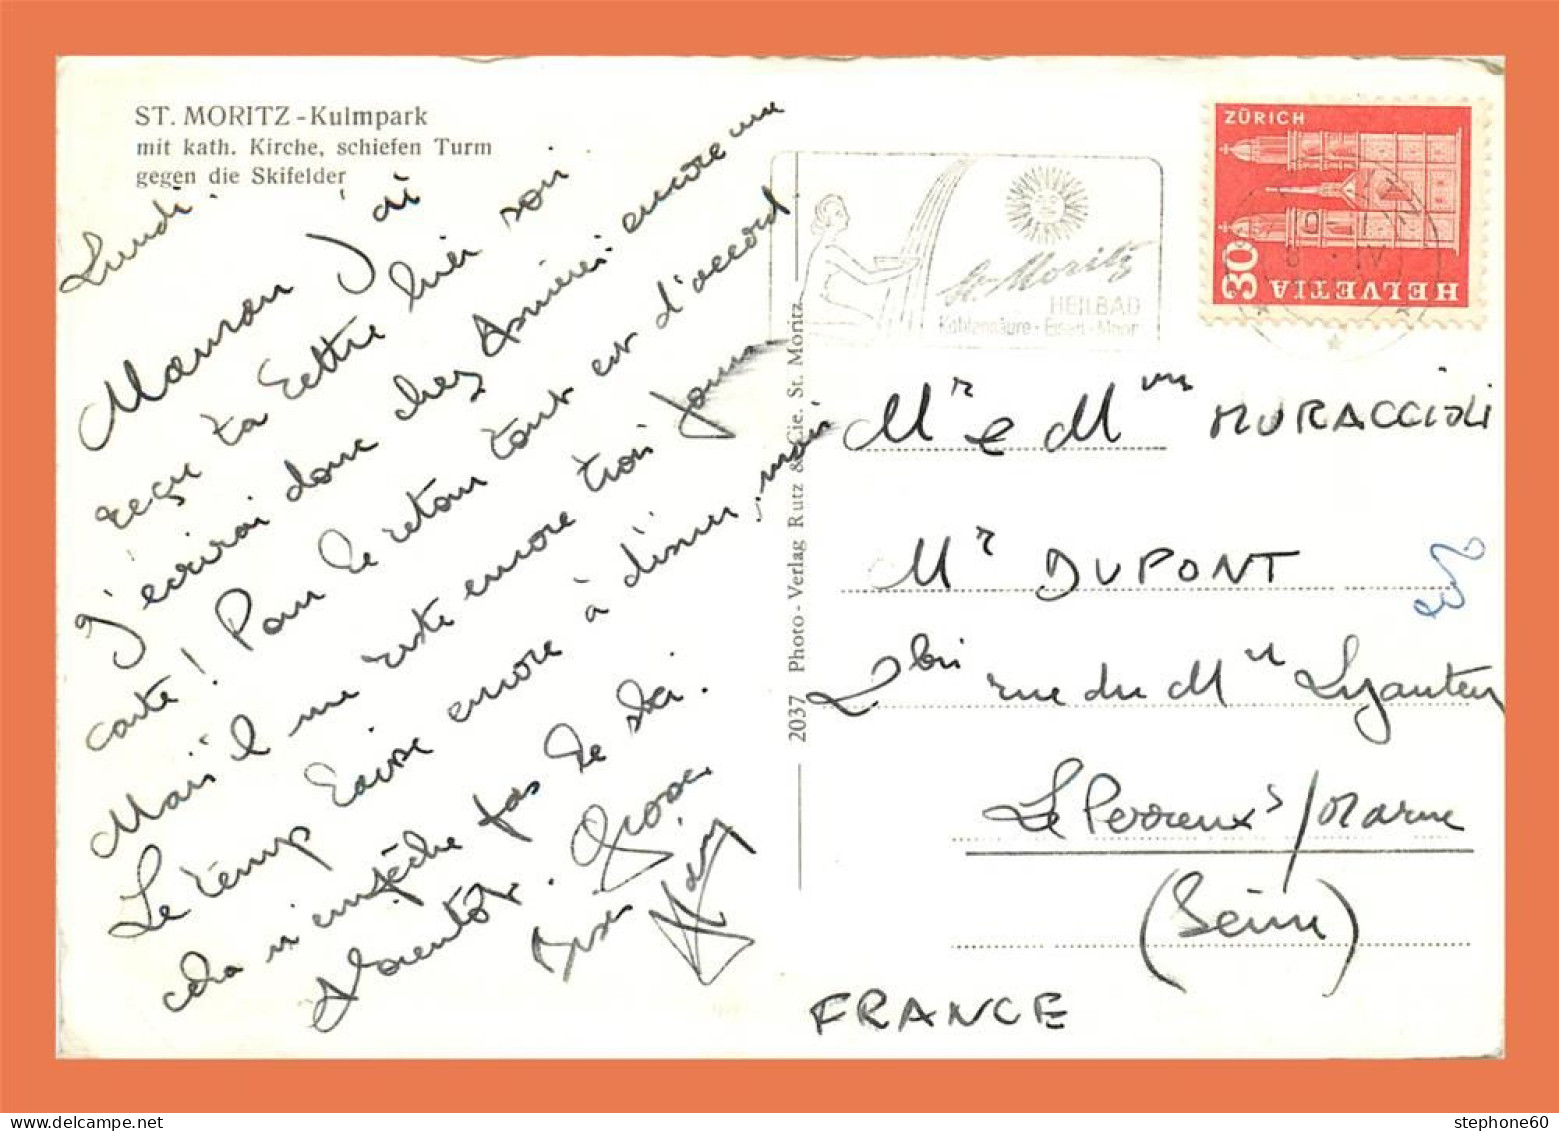 ST. MORITZ - Kulmpark
mit kath. Kirche, schiefen Turm
gegen die Skifelder
Lundi.
Maman J'ai
reçu ta lettre hier soir
J'écrirai donc chez Asnières encore une
carte! Pour le retour tout est d'accord.
Mais il me reste encore trois jours
Le temps laisse encore à désirer, mais
cela n'empêche pas le ski.
A bientôt. Grosses
Bises
2037 Photo - Verlag Rutz & Cie. St. Moritz
St. Moritz
HEILBAD
Kohlensäure - Eisen - Moor
ZÜRICH
30
HELVETIA
Mr e Mme MURACCIOLI
Mr DUPONT
2 bis rue du Mal Lyautey
Le Perreux s/Marne
(Seine)
FRANCE
stephone60